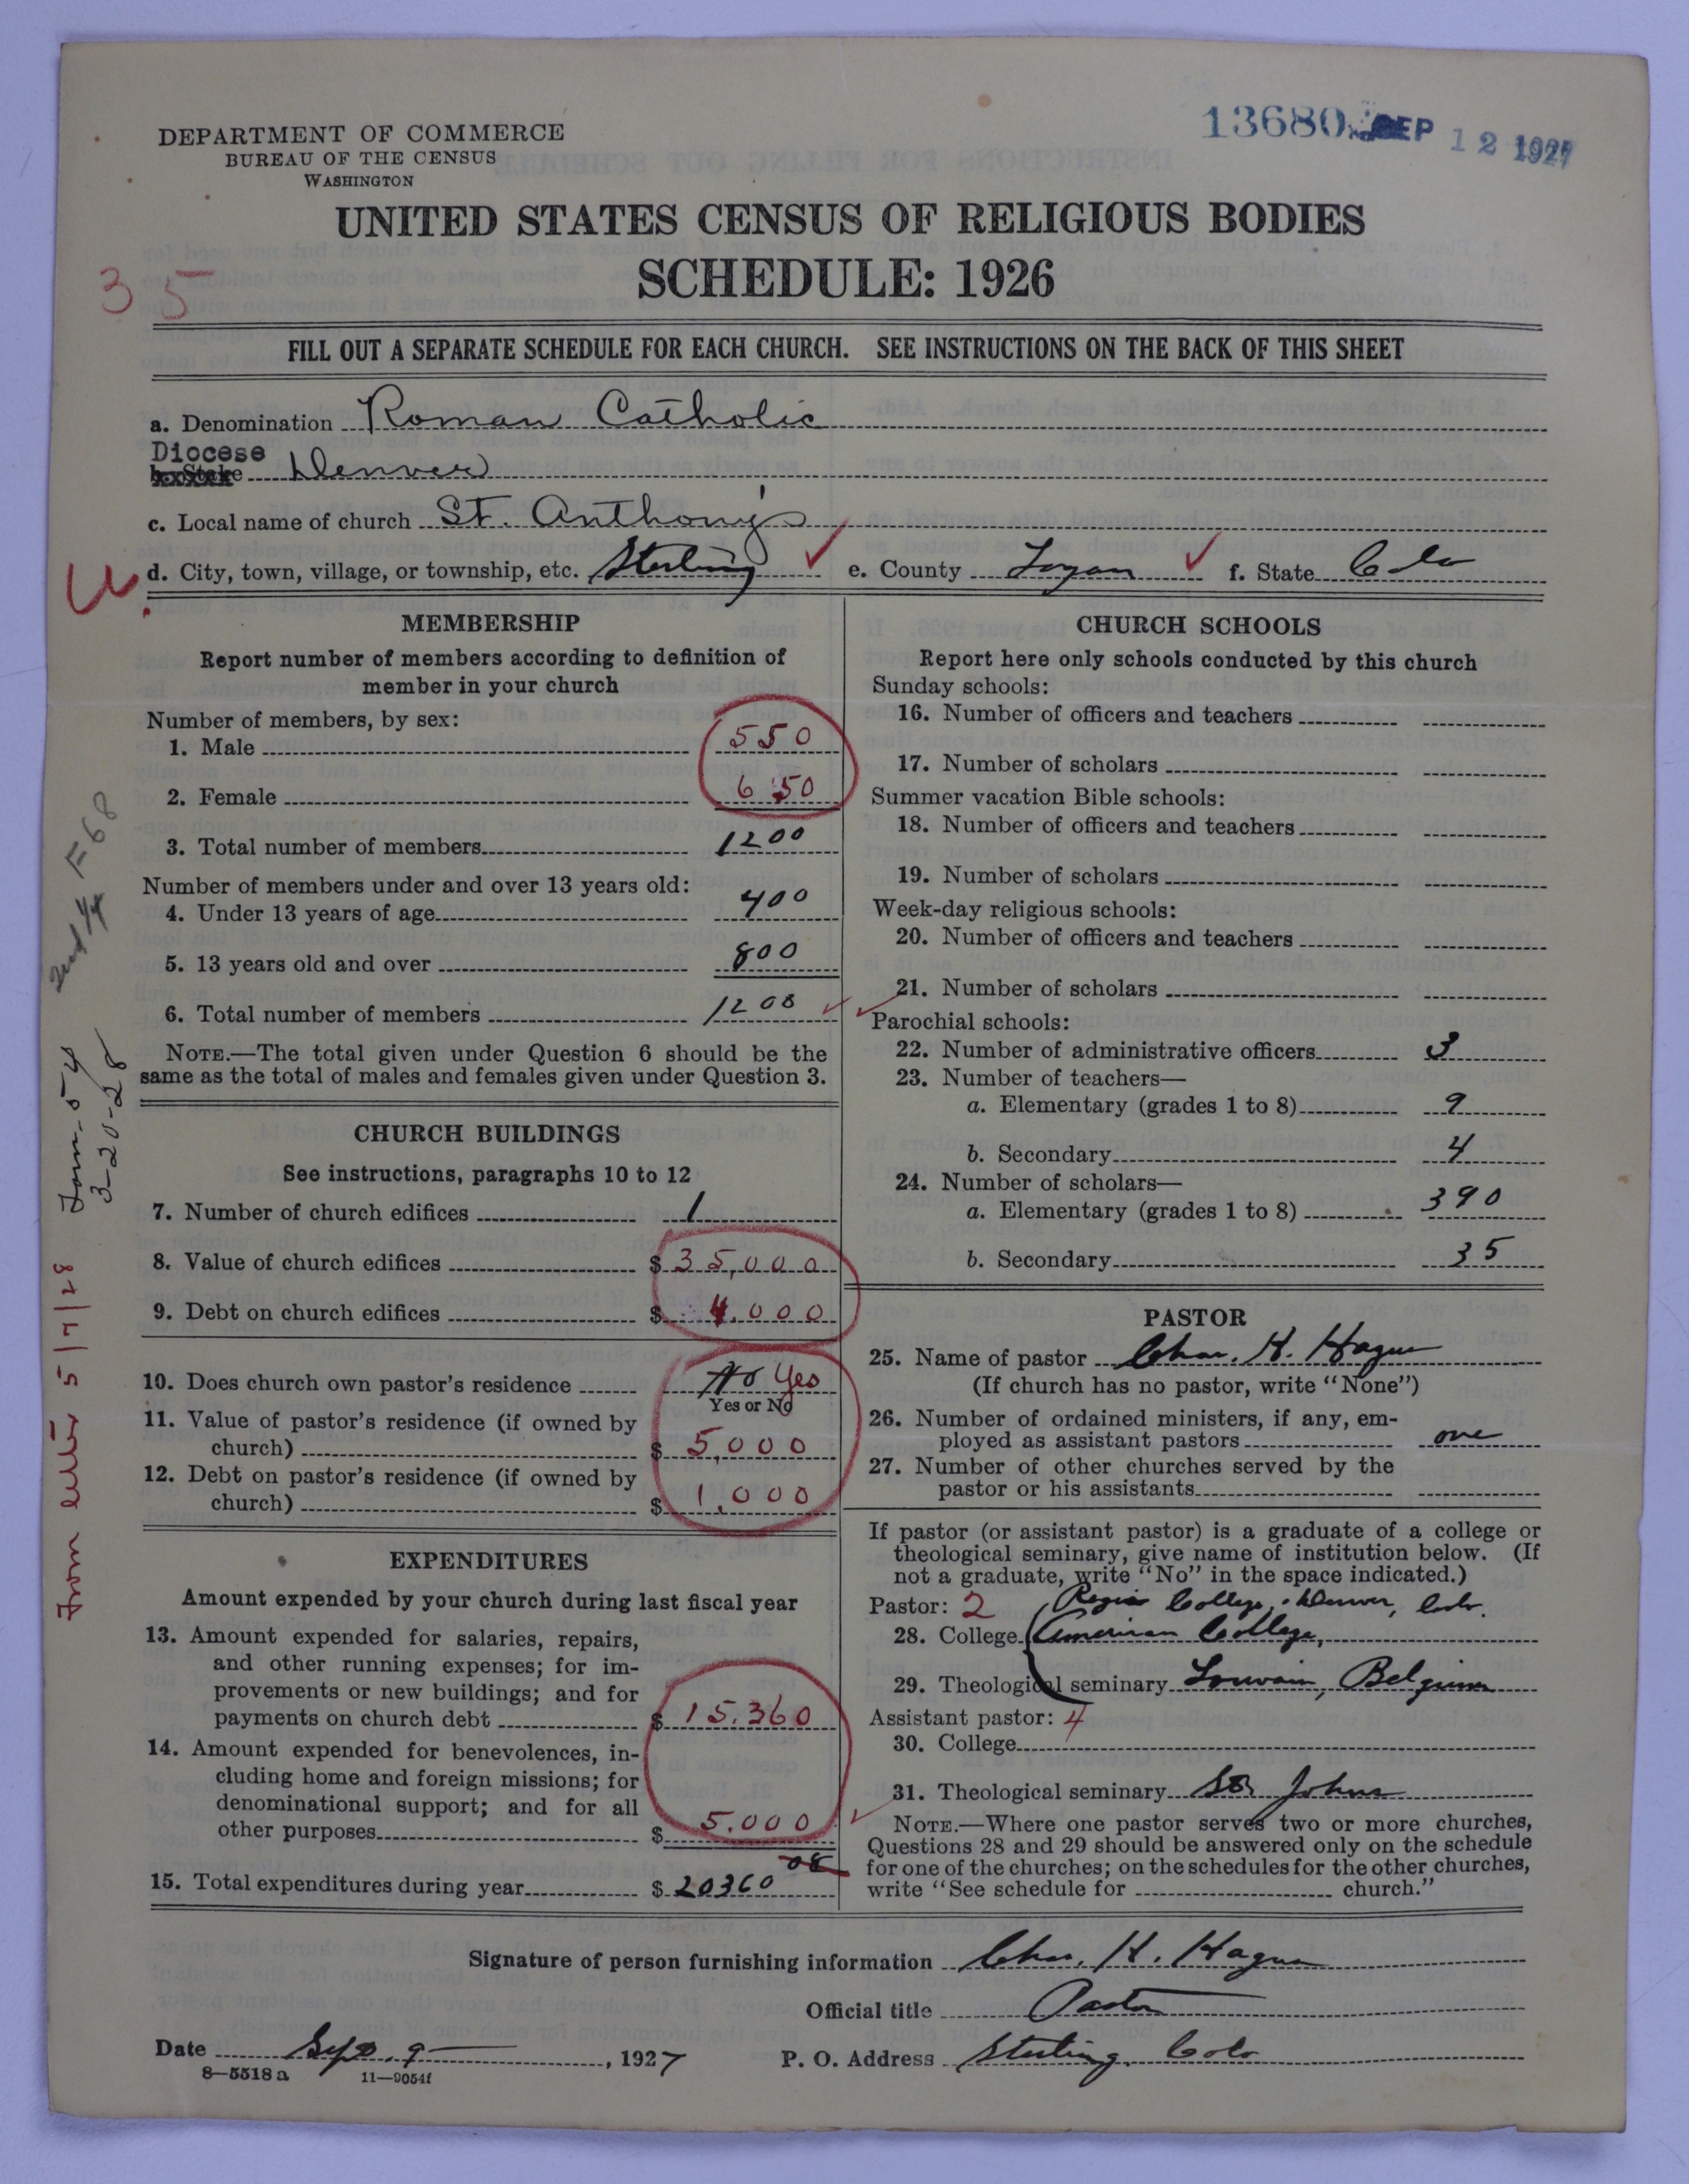 DEPARTMENT OF COMMERCE
BUREAU OF THE CENSUS
WASHINGTON
13680 SEP 12 1927
UNITED STATES CENSUS OF RELIGIOUS BODIES
SCHEDULE: 1926
35
FILL OUT A SEPARATE SCHEDULE FOR EACH CHURCH. SEE INSTRUCTIONS ON THE BACK OF THIS SHEET
a. Denomination Roman Catholic
Diocese
b. Stake Denver
c. Local name of church St. Anthony's
d. City, town, village, or township, etc. Sterling e. County Logan f. State Colo
MEMBERSHIP
Report number of members according to definition of
member in your church
Number of members, by sex:
1. Male 550
2. Female 650
3. Total number of members 1200
Number of members under and over 13 years old:
4. Under 13 years of age 400
5. 13 years old and over 800
6. Total number of members 1200
NOTE.—The total given under Question 6 should be the
same as the total of males and females given under Question 3.
CHURCH BUILDINGS
See instructions, paragraphs 10 to 12
7. Number of church edifices 1
8. Value of church edifices $ 35,000
9. Debt on church edifices $ 4,000
10. Does church own pastor's residence No Yes
Yes or No
11. Value of pastor's residence (if owned by
church) $ 5,000
12. Debt on pastor's residence (if owned by
church) $ 1,000
EXPENDITURES
Amount expended by your church during last fiscal year
13. Amount expended for salaries, repairs,
and other running expenses; for im-
provements or new buildings; and for
payments on church debt $ 15,360
14. Amount expended for benevolences, in-
cluding home and foreign missions; for
denominational support; and for all
other purposes $ 5,000
15. Total expenditures during year $ 20360 08
CHURCH SCHOOLS
Report here only schools conducted by this church
Sunday schools:
16. Number of officers and teachers
17. Number of scholars
Summer vacation Bible schools:
18. Number of officers and teachers
19. Number of scholars
Week-day religious schools:
20. Number of officers and teachers
21. Number of scholars
Parochial schools:
22. Number of administrative officers 3
23. Number of teachers—
a. Elementary (grades 1 to 8) 9
b. Secondary 4
24. Number of scholars—
a. Elementary (grades 1 to 8) 390
b. Secondary 35
PASTOR
25. Name of pastor Chas. H. Hagus
(If church has no pastor, write "None")
26. Number of ordained ministers, if any, em-
ployed as assistant pastors one
27. Number of other churches served by the
pastor or his assistants
If pastor (or assistant pastor) is a graduate of a college or
theological seminary, give name of institution below. (If
not a graduate, write "No" in the space indicated.)
Pastor: 2 Regis College, Denver, Colo.
28. College American College,
29. Theological seminary Louvain, Belgium
Assistant pastor: 4
30. College
31. Theological seminary St Johns
NOTE.—Where one pastor serves two or more churches,
Questions 28 and 29 should be answered only on the schedule
for one of the churches; on the schedules for the other churches,
write "See schedule for church."
Signature of person furnishing information Chas. H. Hagus
Official title Pastor
Date Sep. 9 , 1927 P. O. Address Sterling, Colo
8—5518a 11—9054f
F-68
Form-54
3-20-28
From letter 5/7/28